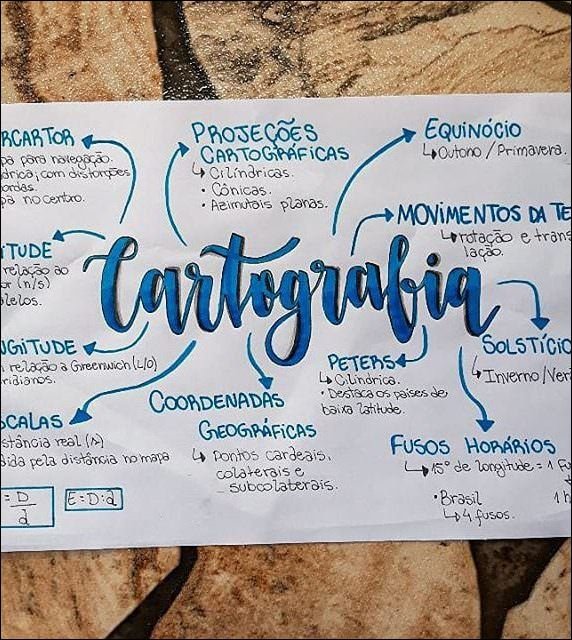 RCARTOR
pa para navegação.
drica; com distorções
ordas.
pa no centro.
PROJEÇÕES
CARTOGRÁFICAS
↳ Cilíndricas.
• Cônicas.
• Azimutais planas.
EQUINÓCIO
↳ Outono / Primavera.
MOVIMENTOS DA TE
↳ rotação e trans
lação.
TUDE
relação ao
or (n/s)
lelos.
Cartografia
NGITUDE
relação a Greenwich (L/O)
ridianos.
SCALAS
stância real (N)
dida pela distância no mapa
= D
d
E = D : d
COORDENADAS
GEOGRÁFICAS
↳ Pontos cardeais,
colaterais e
subcolaterais.
PETERS
↳ Cilíndrica.
• Destaca os países de
baixa latitude.
SOLSTÍCIO
↳ Inverno / Ver
FUSOS HORÁRIOS
↳ 15° de longitude = 1 fu
1 h
• Brasil
↳ 4 fusos.